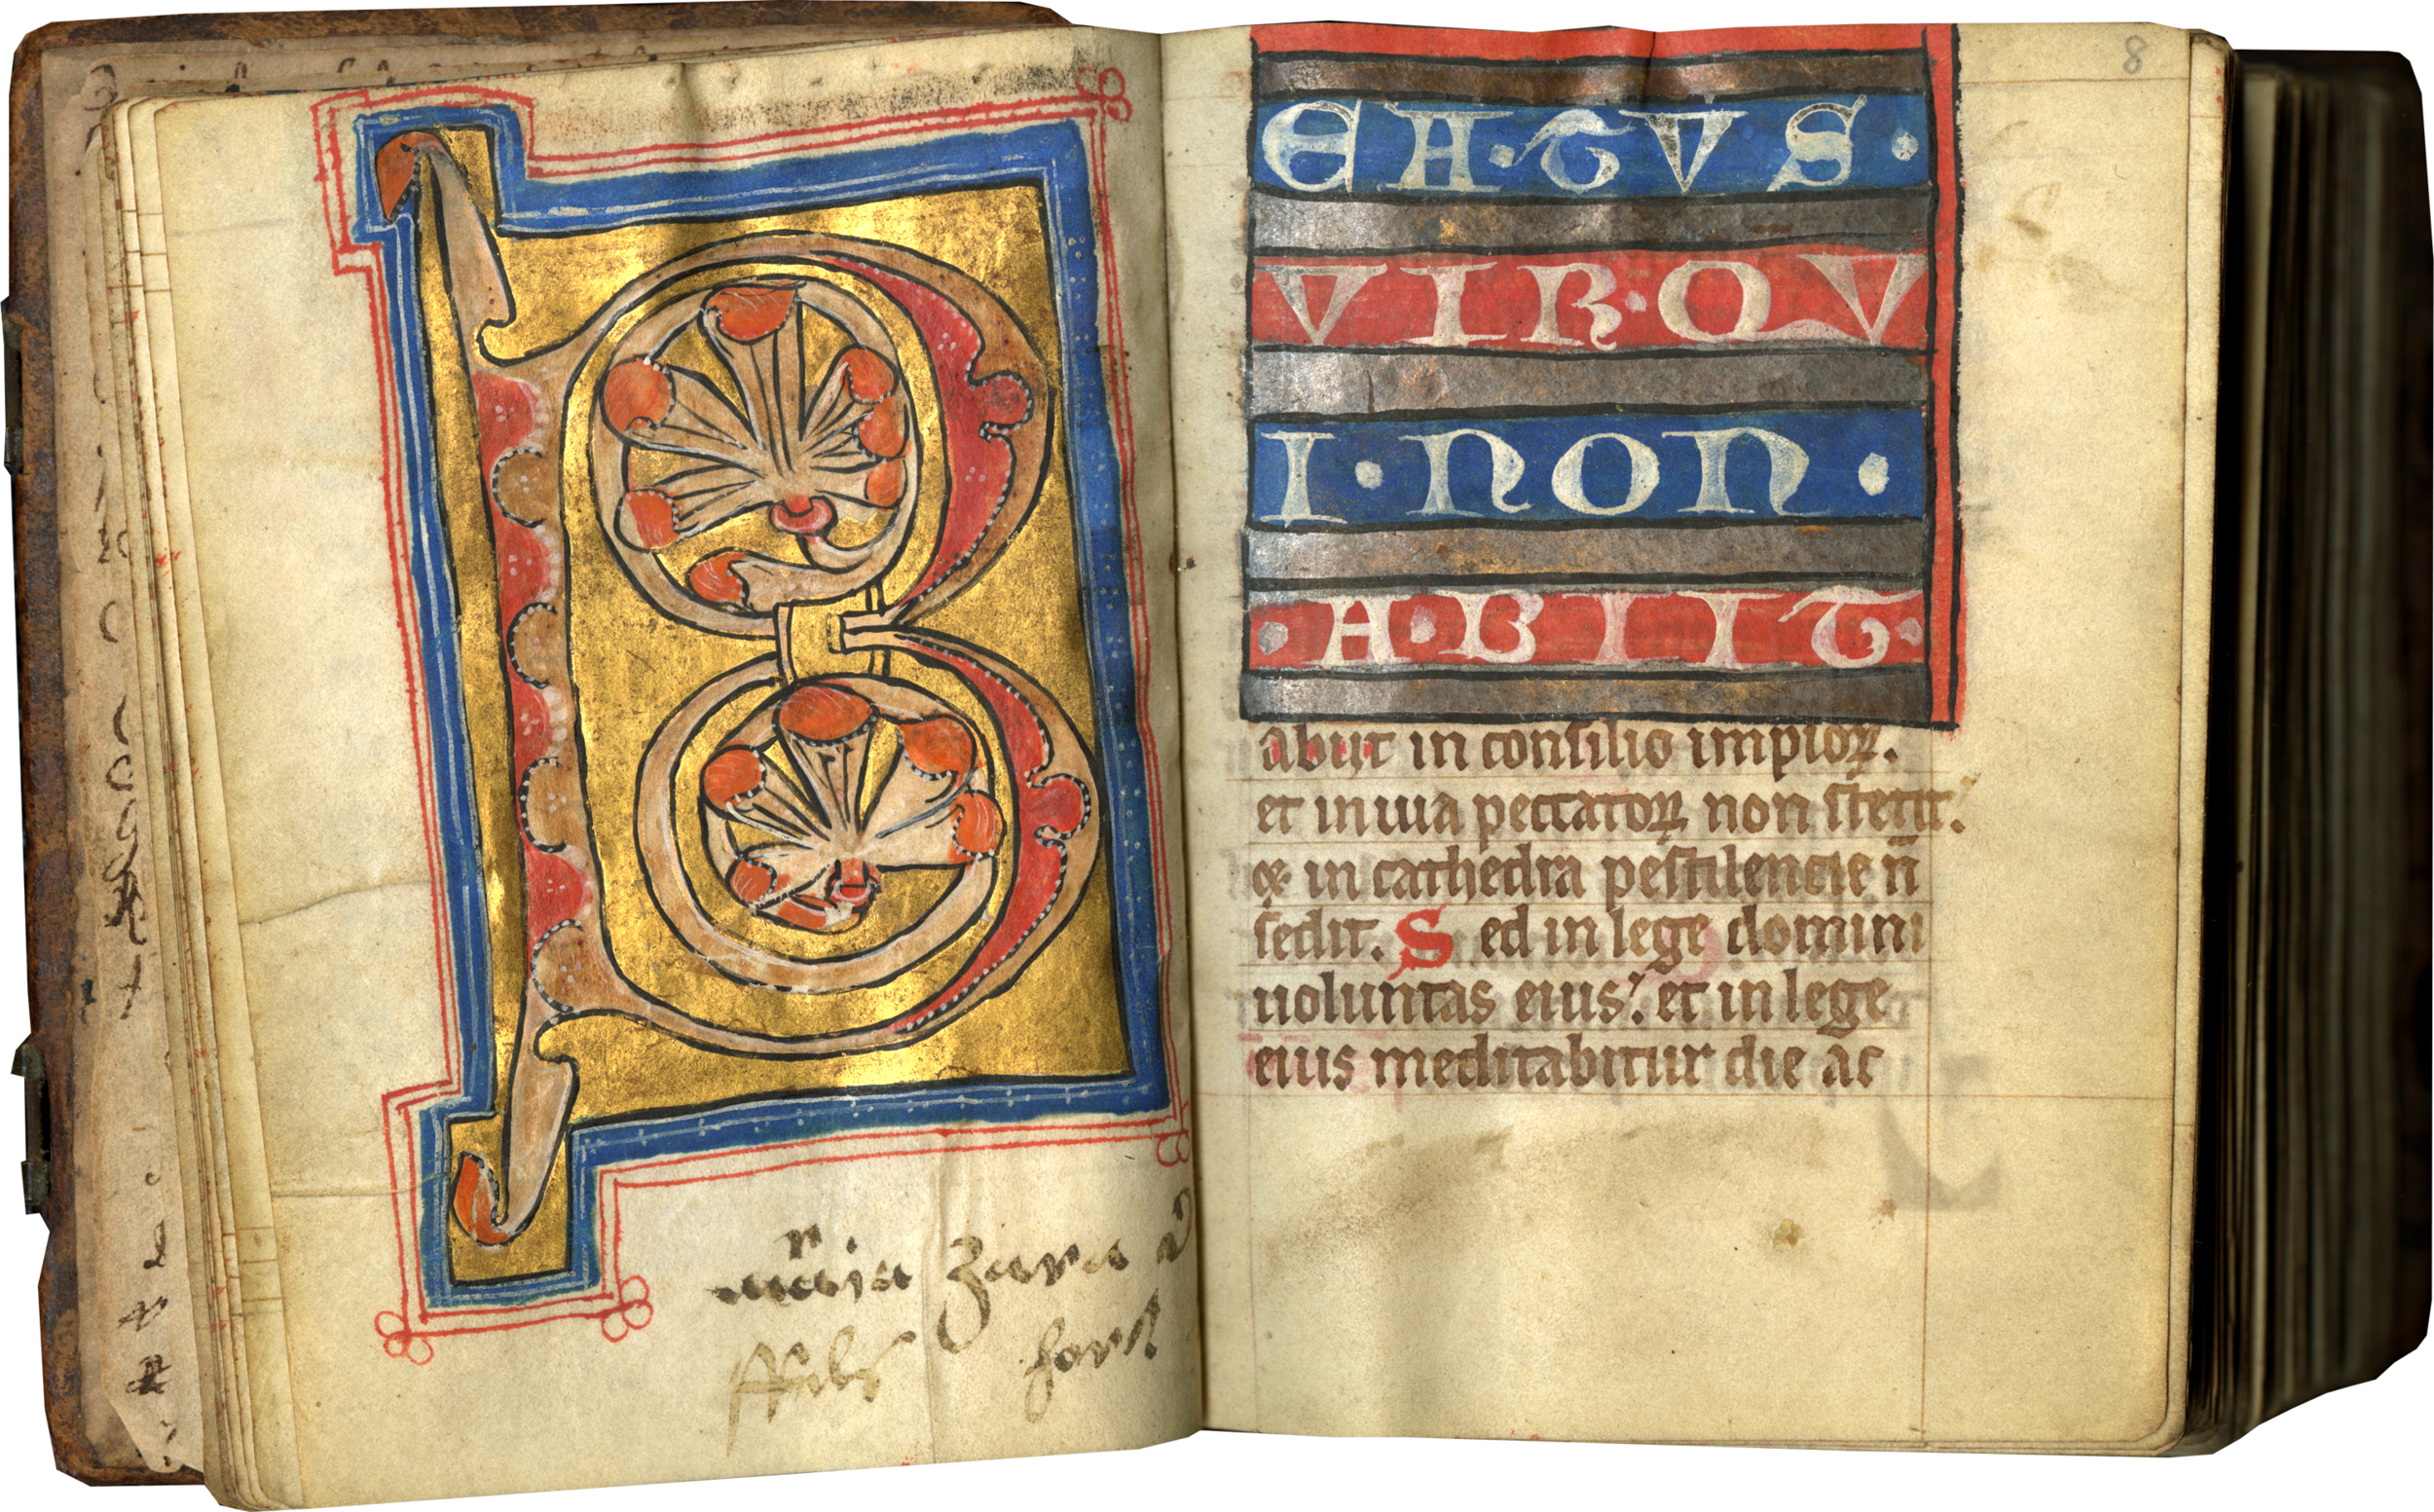 B
8
EATVS·
VIR·QV
I·NON·
·ABIIT·
abiit in consilio impioꝝ.
et in uia peccatoꝝ non stetit.
⁊ in cathedra pestilencie n̄
sedit. Sed in lege domini
uoluntas eius. et in lege
eius meditabitur die ac
zara